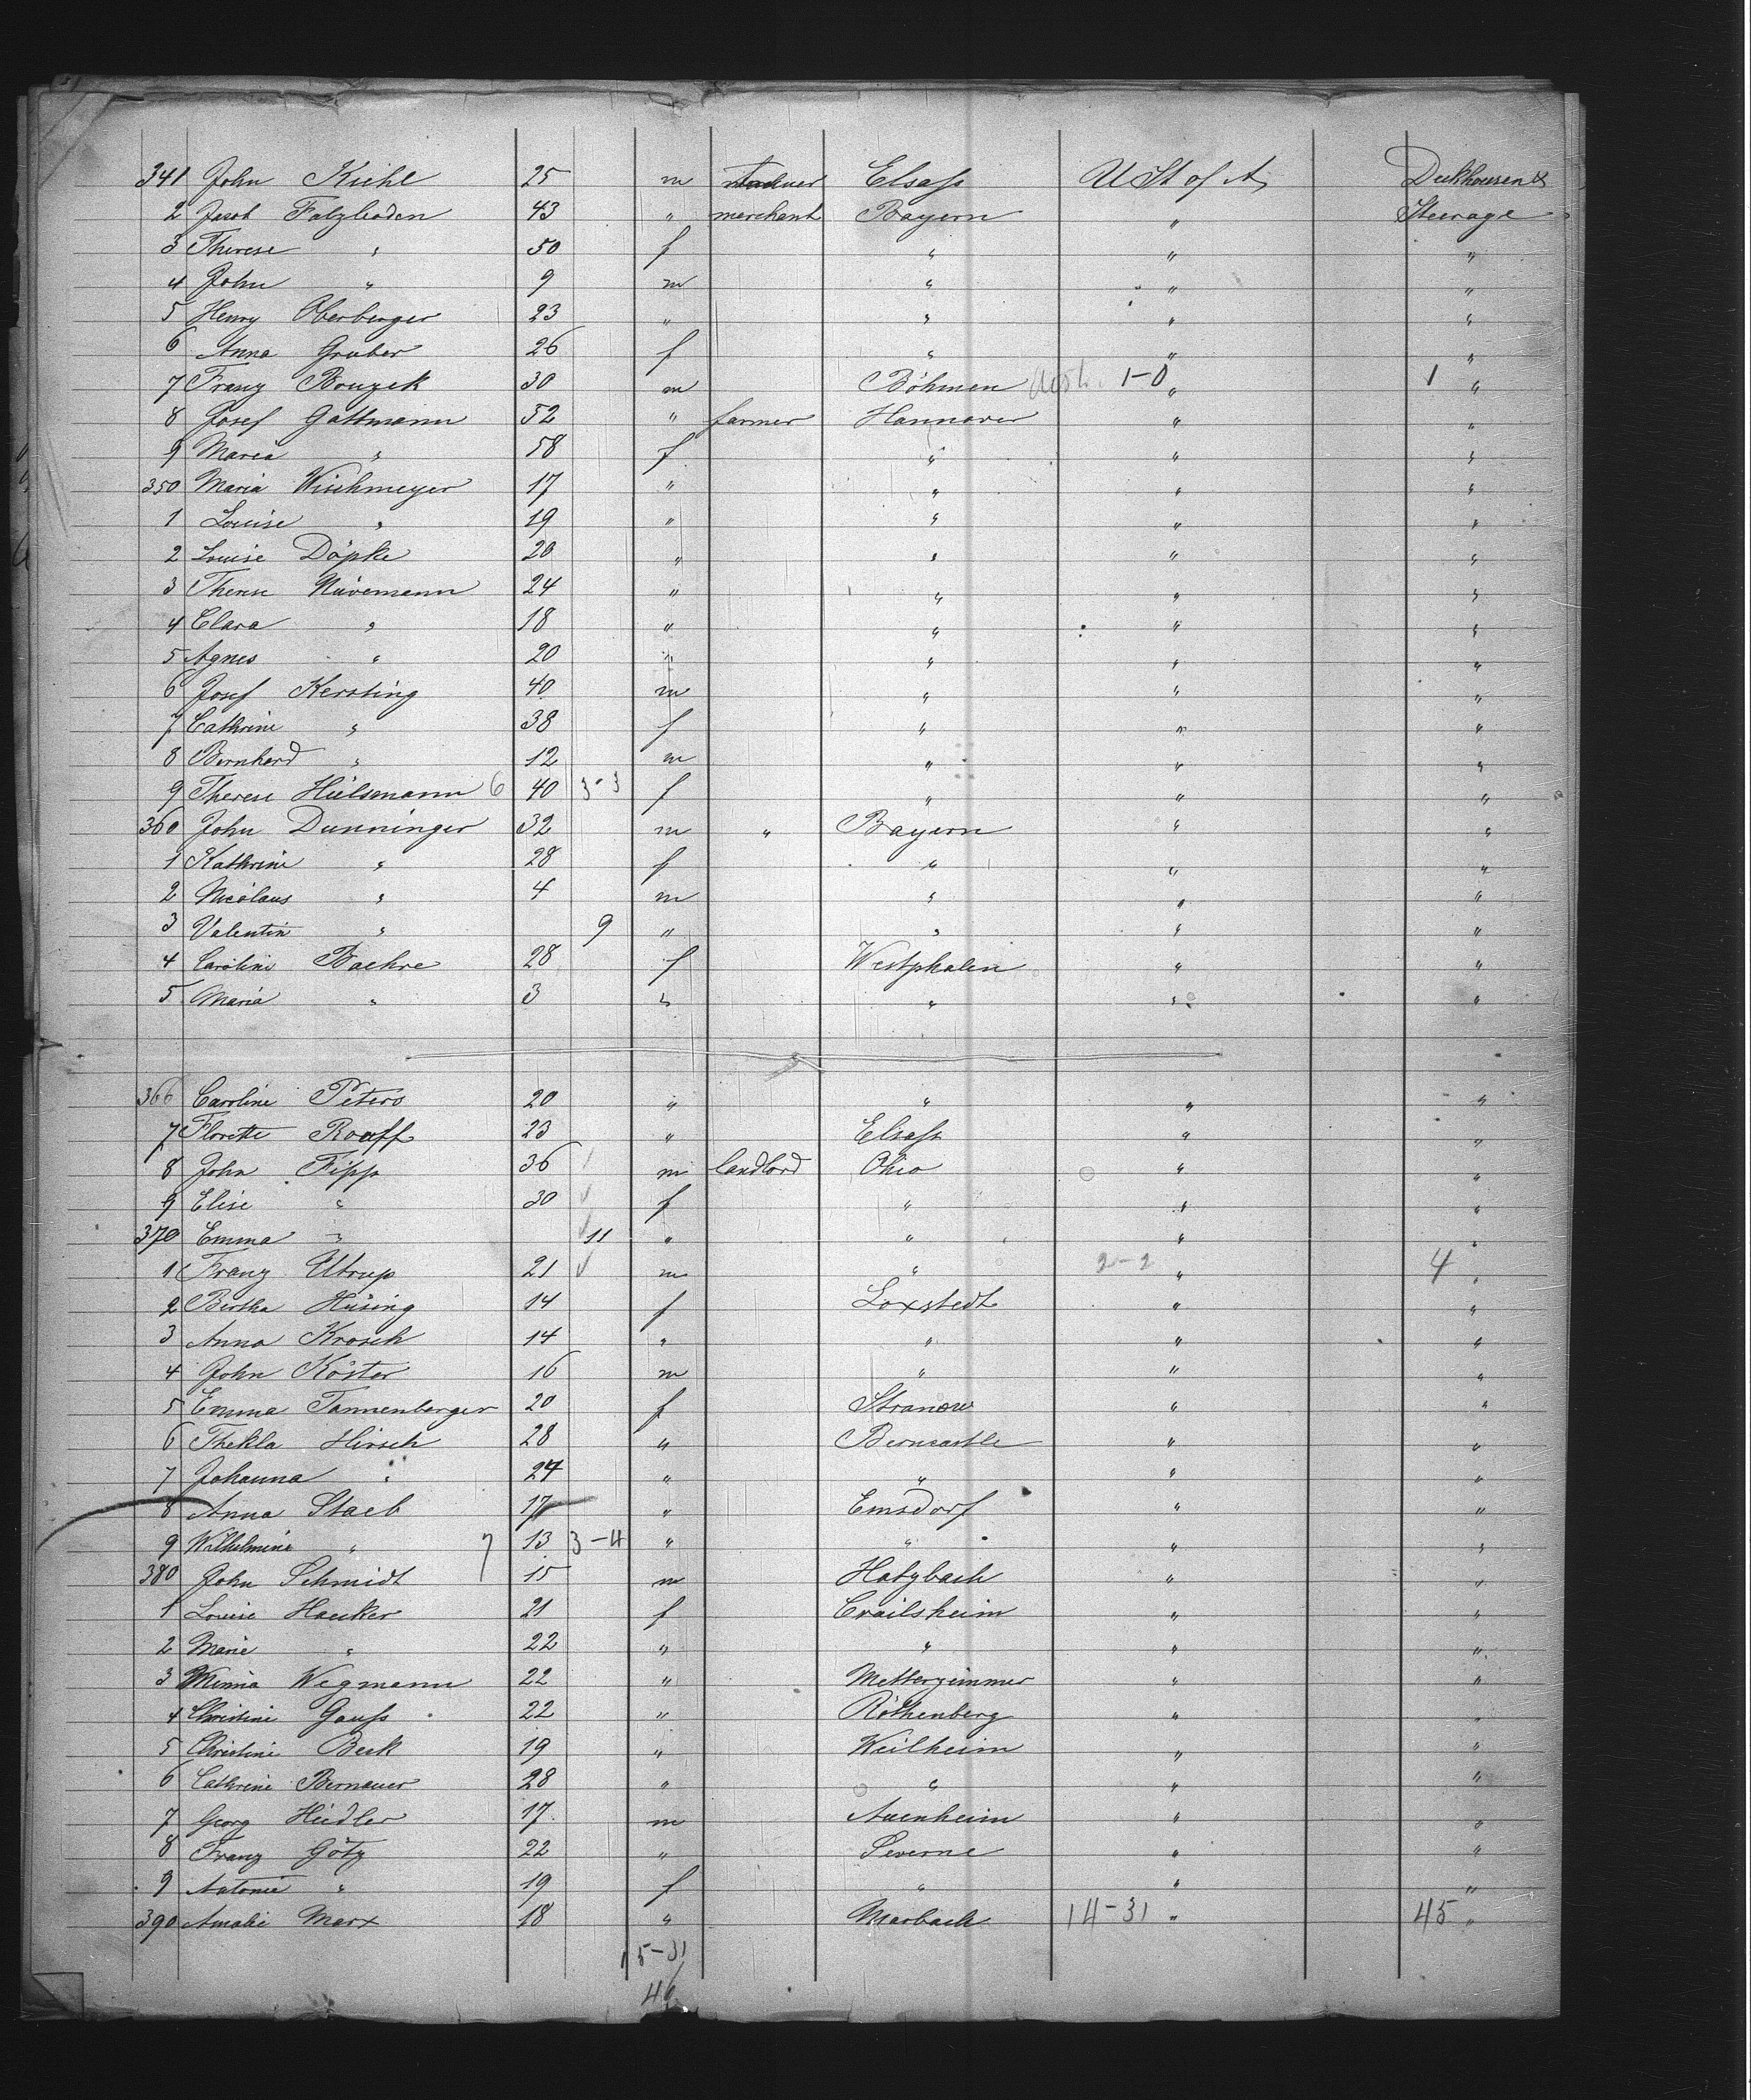 341 John Kiehl 25 m Elsass U St of A. Deckhouse &
2 Jacob Falzboden 43 " merchant Bayern " Steerage
3 Therese " 50 f " " "
4 John " 9 m " " "
5 Henry Oberberger 23 " " " "
6 Anna Gruber 26 f " " "
7 Franz Bouzek 30 m Böhmen 1-0 " 1 "
8 Josef Gattmann 52 " farmer Hannover " "
9 Maria " 58 f " " "
350 Maria Wischmeyer 17 " " " "
1 Louise " 19 " " " "
2 Louise Döpke 20 " " " "
3 Therese Nüvemann 24 " " " "
4 Clara " 18 " " " "
5 Agnes " 20 " " " "
6 Josef Kersting 40 m " " "
7 Cathrine " 38 f " " "
8 Bernhard " 12 m " " "
9 Therese Hülsmann 6 40 3-3 f " " "
360 John Dunninger 32 m " Bayern " "
1 Kathrine " 28 f " " "
2 Nicolaus " 4 m " " "
3 Valentin " 9 " " " "
4 Caroline Baehre 28 f Westphalen " "
5 Maria " 3 " " " "
366 Caroline Peters 20 " " " "
7 Florette Roeff 23 " Elsass " "
8 John Fipp 36 m landlord Ohio " "
9 Elise " 30 f " " "
370 Emma " 11 " " " "
1 Franz Utrup 21 m " 2-2 " 4 "
2 Bertha Hüsing 14 f Loxstedt " "
3 Anna Krosch 14 " " " "
4 John Köster 16 m " " "
5 Emma Tannenberger 20 f Stranow " "
6 Thekla Hirsch 28 " Berncastle " "
7 Johanna " 24 " " " "
8 Anna Staeb 17 " Emsdorf " "
9 Wilhelmine " 7 13 3-4 " " " "
380 John Schmidt 15 m Hatzbach " "
1 Louise Hauker 21 f Crailsheim " "
2 Marie " 22 " " " "
3 Minna Wegmann 22 " Metterzimmer " "
4 Christine Gauss 22 " Röthenberg " "
5 Christine Beck 19 " Weilheim " "
6 Cathrine Bernauer 28 " " " "
7 Georg Hiedler 17 m Auenheim " "
8 Franz Götz 22 " Severne " "
9 Antonie " 19 f " " "
390 Amalie Marx 18 " Marbach 14-31 " 45 "
15-31
46